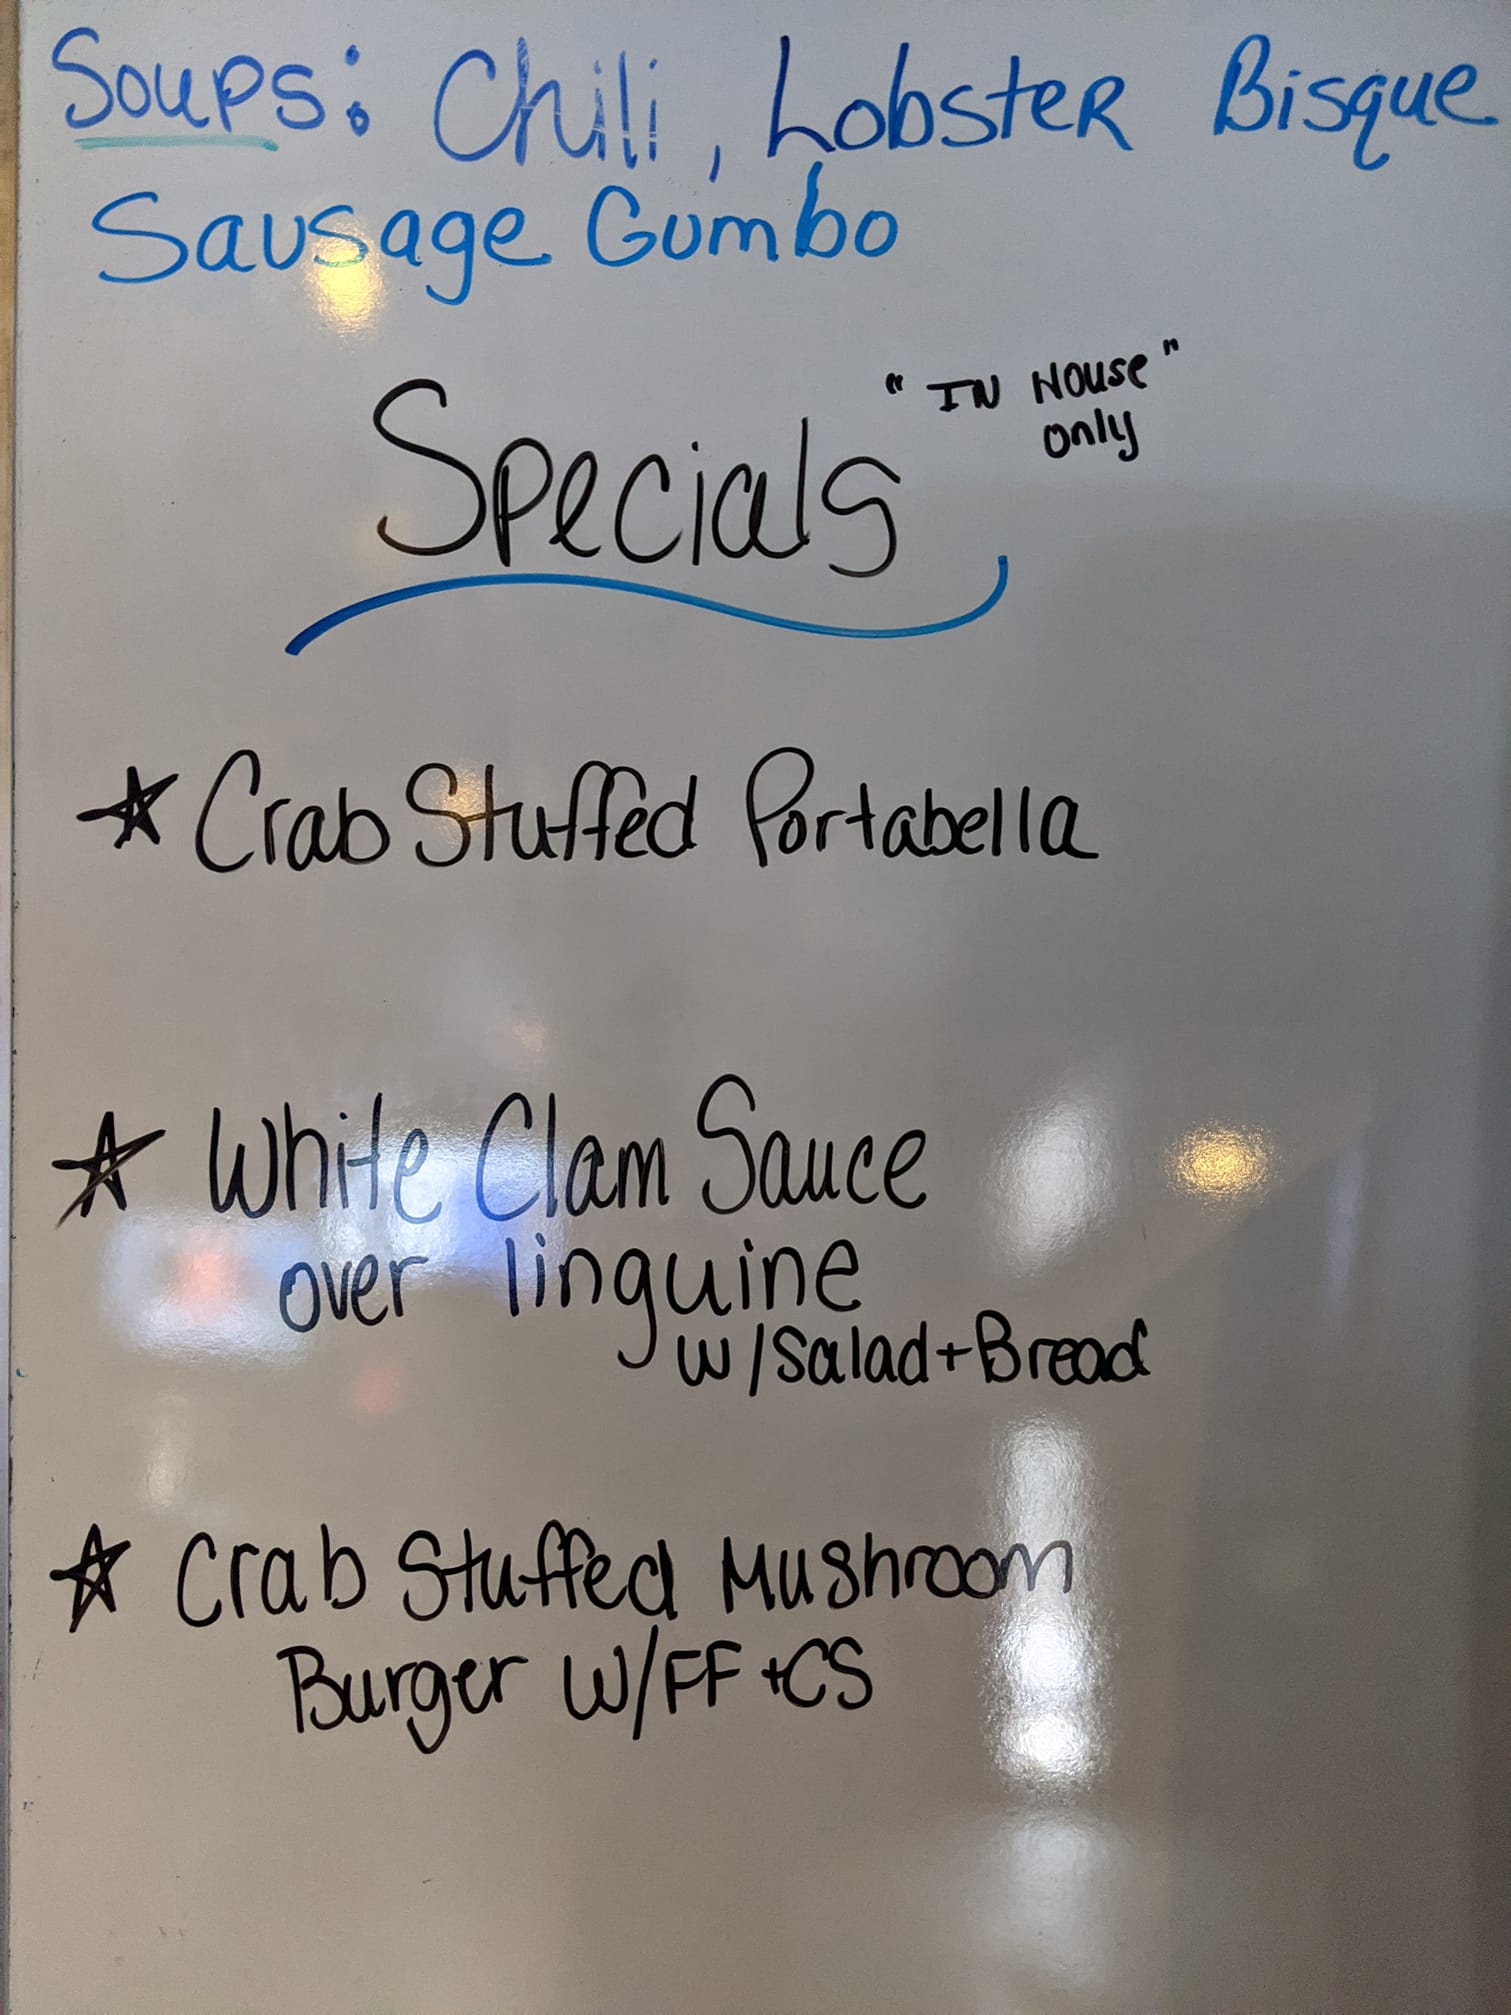 Soups: Chili, Lobster Bisque
Sausage Gumbo
"IN House"
only
Specials
☆ Crab Stuffed Portabella
☆ White Clam Sauce
over linguine
w/Salad+Bread
☆ Crab Stuffed Mushroom
Burger W/FF+CS